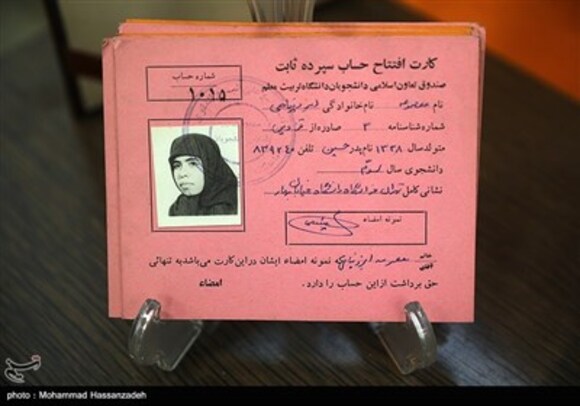 کارت افتتاح حساب سپرده ثابت
صندوق تعاون اسلامی دانشجویان دانشگاه تربیت معلم
شماره حساب
۱۰۱۵
نام معصومه نام خانوادگی
شماره شناسنامه ۳ صادره از
متولد سال ۱۳۳۸ نام پدر حسین تلفن ۸۳۹۲۴۰
دانشجوی سال
نشانی کامل تهران
نمونه امضاء
معصومه که نمونه امضاء ایشان در این کارت می‌باشد به تنهائی
حق برداشت از این حساب را دارد. امضاء
photo : Mohammad Hassanzadeh